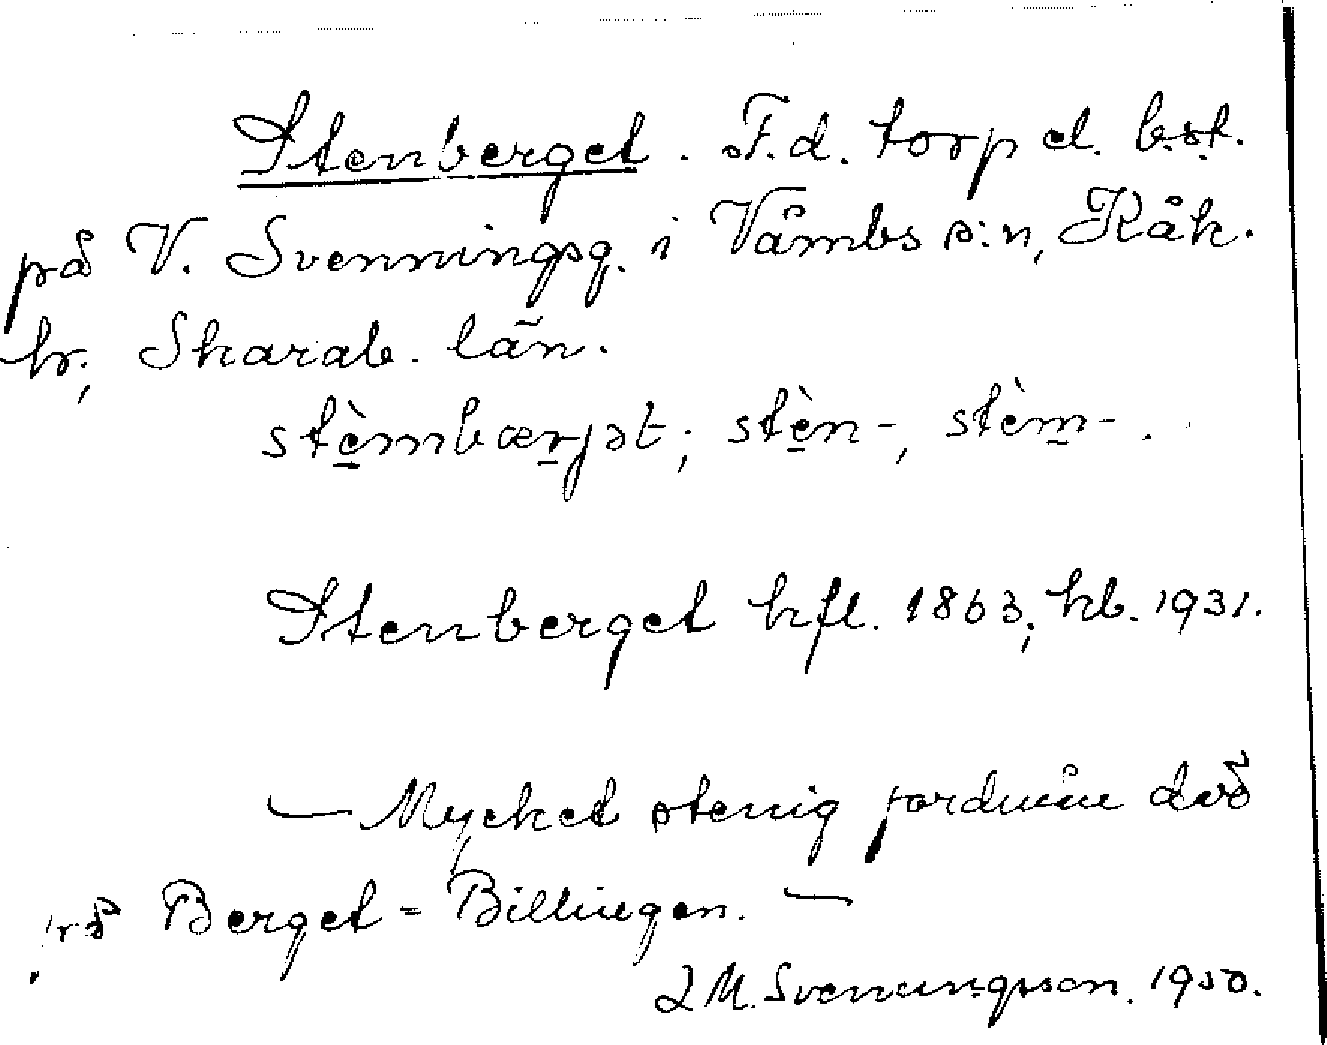 Stenberget. F.d. torp el. bst.
på V. Svenningsg. i Våmbs s:n, Kåk.
hr; Skarab. län.
stèmbærjət; stèn-, stèm-.
Stenberget hfl. 1863; kb. 1931.
— Mycket stenig
på Berget = Billingen. —
M. Svenungsson. 1950.